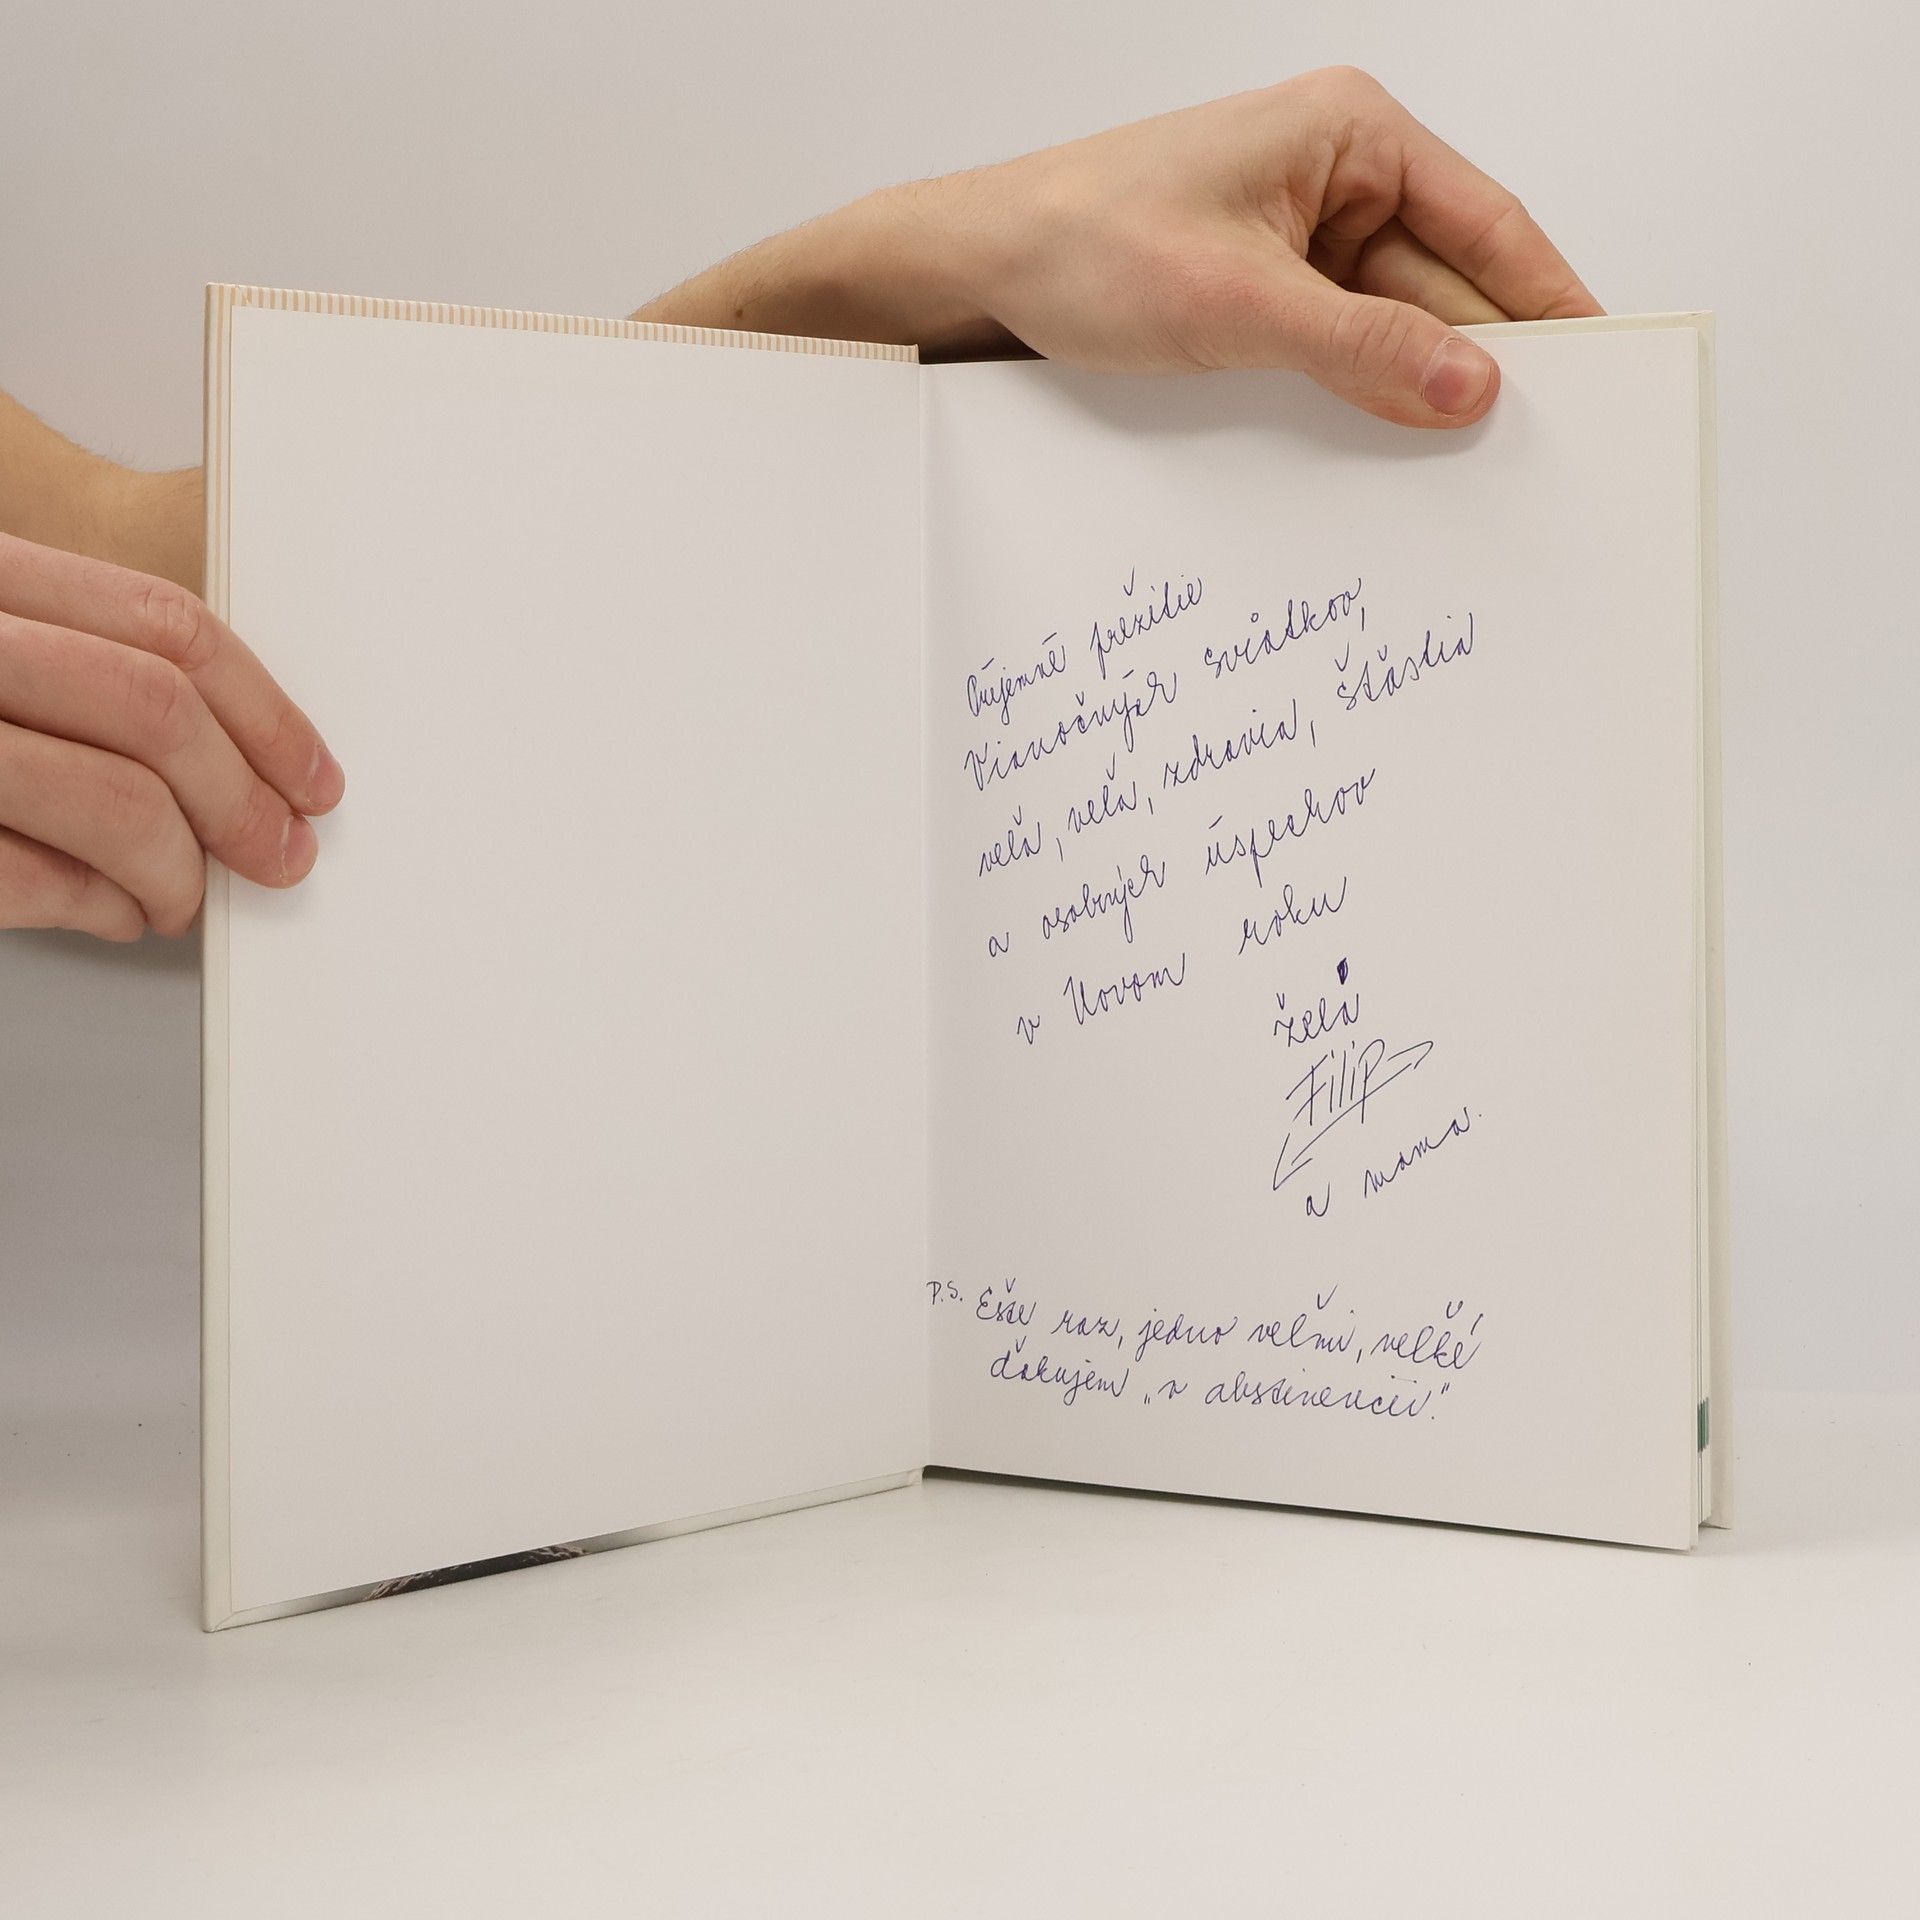 Príjemné prežitie
Vianočných sviatkov,
veľa, veľa, zdravia, šťastia
a osobných úspechov
v Novom roku
želá
Filip
a mama.
P.S. Ešte raz, jedno veľmi, veľké
ďakujem „v abstinencii."